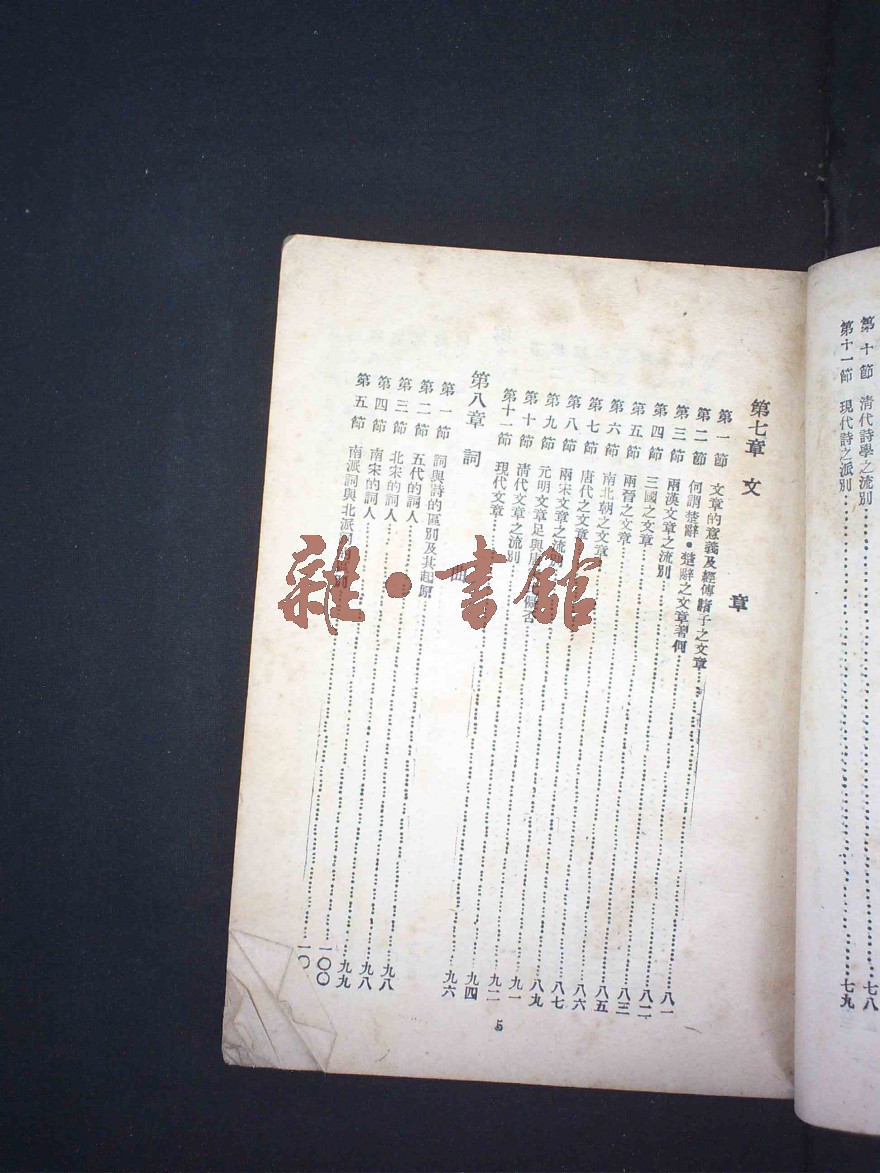 第十節 清代詩學之流別……七八
第十一節 現代詩之派別……七九
第七章 文章
第一節 文章的意義及經傳諸子之文章……八一
第二節 何謂楚辭·楚辭之文章若何……八二
第三節 兩漢文章之流別……八三
第四節 三國之文章……八五
第五節 兩晉之文章……八六
第六節 南北朝之文章……八七
第七節 唐代之文章……八九
第八節 兩宋文章之流別……九一
第九節 元明文章足與唐……否……九二
第十節 清代文章之流別……九四
第十一節 現代文章……九六
第八章 詞曲
第一節 詞與詩的區別及其起原……九八
第二節 五代的詞人……九八
第三節 北宋的詞人……九九
第四節 南宋的詞人……一〇〇
第五節 南派詞與北派詞的區別……一〇
5
雜·書館